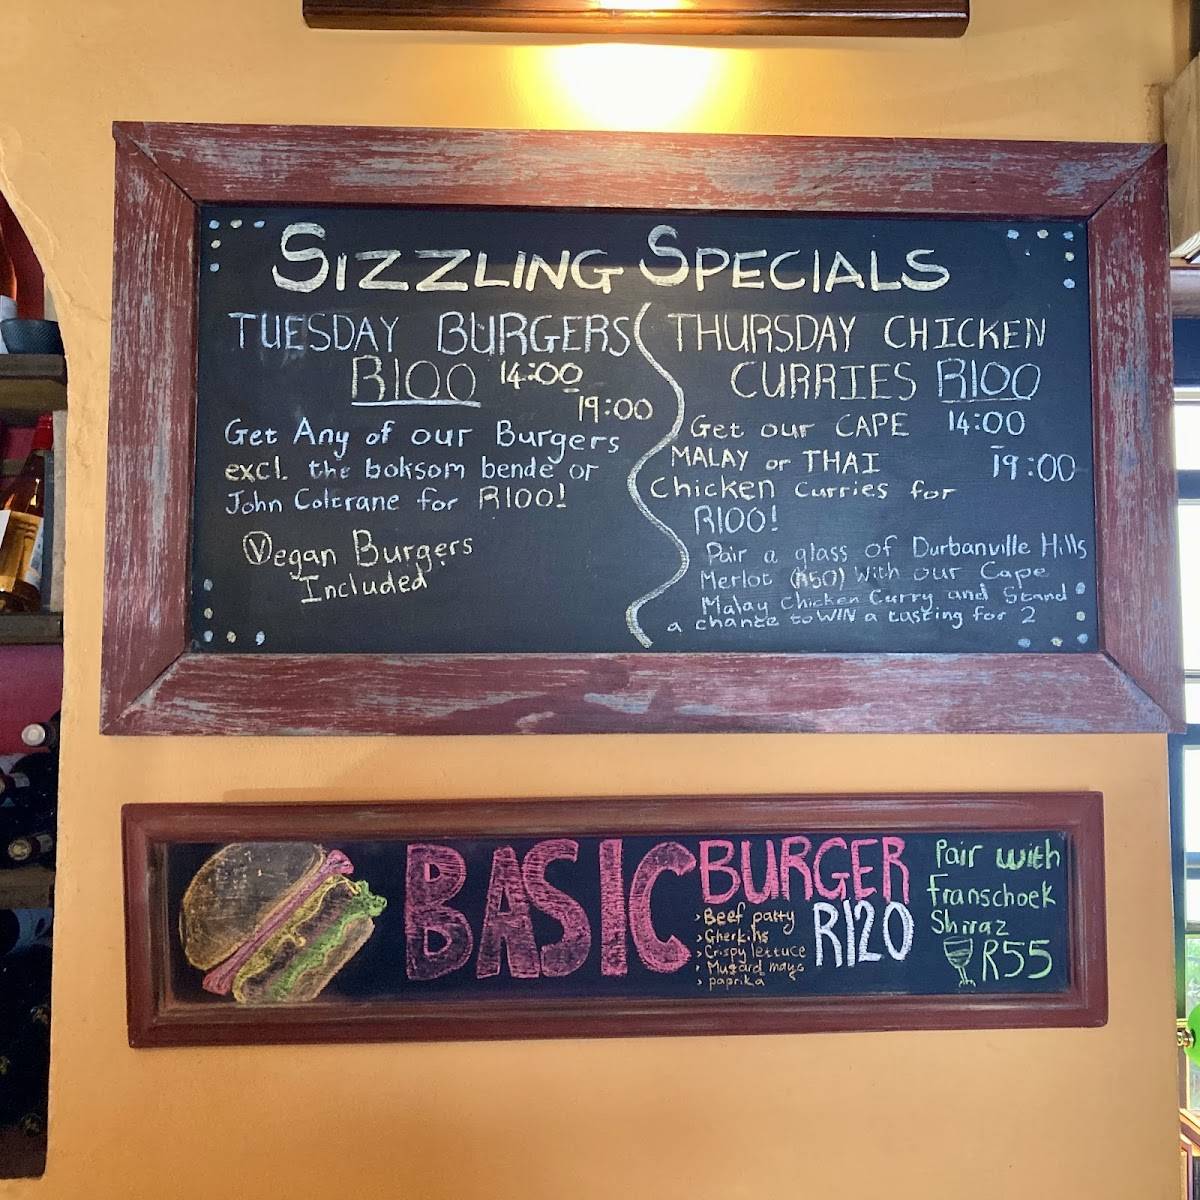 SIZZLING SPECIALS
TUESDAY BURGERS
R100 14:00
19:00
Get Any of our Burgers
excl. the boksom bende or
John Coltrane for R100!
Vegan Burgers
Included
THURSDAY CHICKEN
CURRIES R100
Get our CAPE 14:00
MALAY or THAI 19:00
Chicken Curries for
R100!
Pair a glass of Durbanville Hills
Merlot (R50) with our Cape
Malay Chicken Curry and Stand
a chance to WIN a tasting for 2
BASIC BURGER
› Beef patty
› Gherkins
› Crispy lettuce
› Mustard mayo
› paprika
R120
Pair with
Franschoek
Shiraz
R55